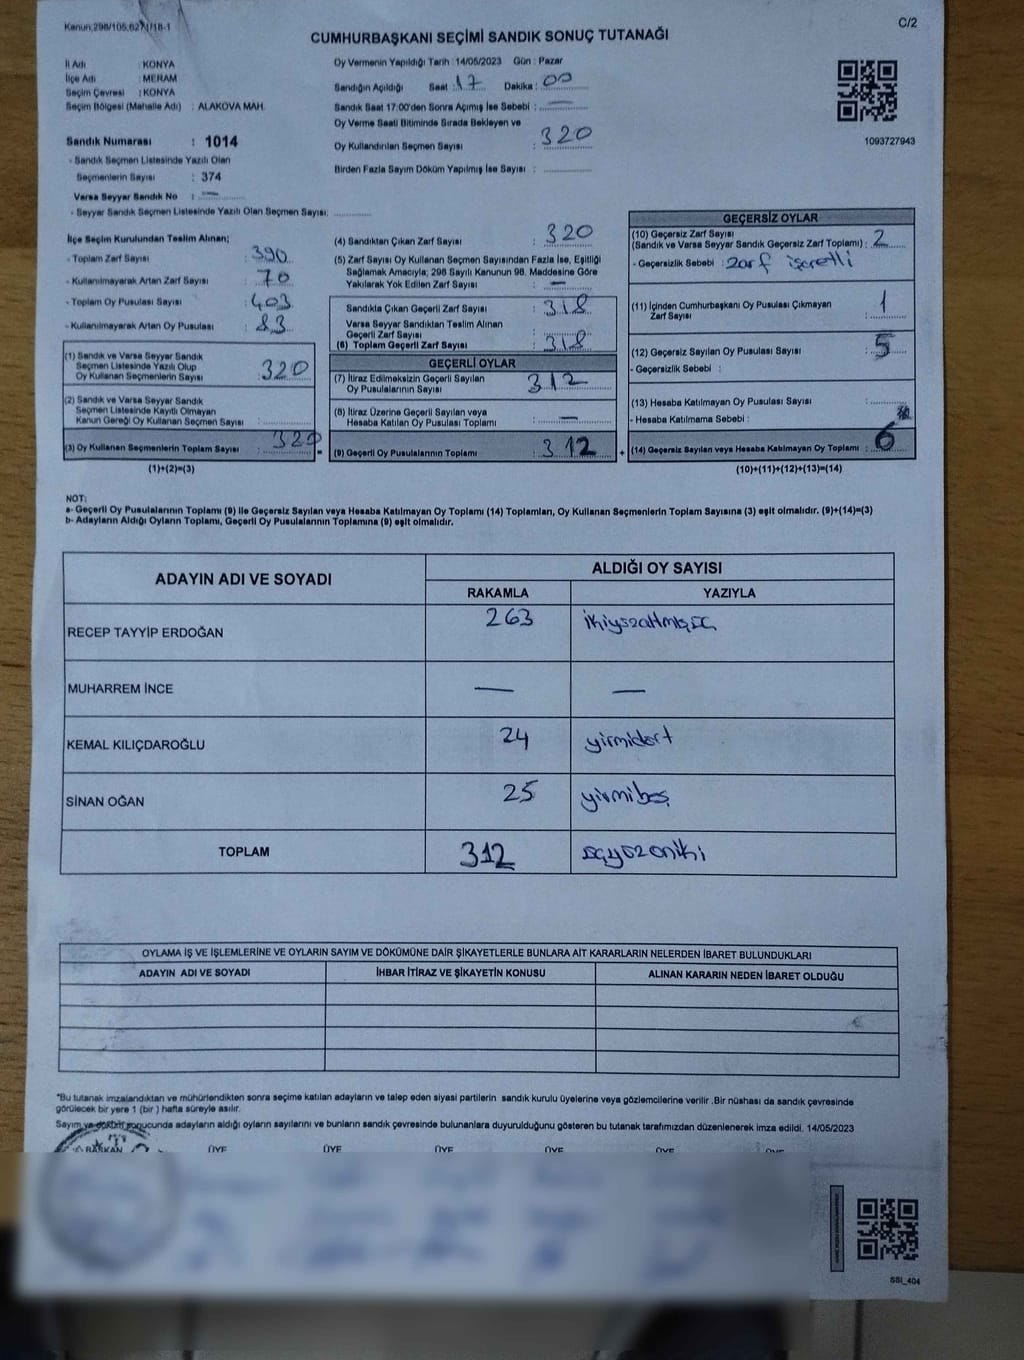 Kanun;298/105,627/1/18-1
C/2
CUMHURBAŞKANI SEÇİMİ SANDIK SONUÇ TUTANAĞI
İl Adı : KONYA
İlçe Adı : MERAM
Seçim Çevresi : KONYA
Seçim Bölgesi (Mahalle Adı) : ALAKOVA MAH.
Oy Vermenin Yapıldığı Tarih : 14/05/2023 Gün : Pazar
Sandığın Açıldığı Saat : 17 Dakika : 00
Sandık Saat 17:00'den Sonra Açımış İse Sebebi : —
Oy Verme Saati Bitiminde Sırada Bekleyen ve
Oy Kullandırılan Seçmen Sayısı : 320
Birden Fazla Sayım Döküm Yapılmış İse Sayısı :
1093727943
Sandık Numarası : 1014
- Sandık Seçmen Listesinde Yazılı Olan
Seçmenlerin Sayısı : 374
Varsa Seyyar Sandık No : —
- Seyyar Sandık Seçmen Listesinde Yazılı Olan Seçmen Sayısı:
İlçe Seçim Kurulundan Teslim Alınan;
- Toplam Zarf Sayısı : 390
- Kullanılmayarak Artan Zarf Sayısı : 70
- Toplam Oy Pusulası Sayısı : 403
- Kullanılmayarak Artan Oy Pusulası : 83
(1) Sandık ve Varsa Seyyar Sandık
Seçmen Listesinde Yazılı Olup
Oy Kullanan Seçmenlerin Sayısı : 320
(2) Sandık ve Varsa Seyyar Sandık
Seçmen Listesinde Kayıtlı Olmayan
Kanun Gereği Oy Kullanan Seçmen Sayısı :
(3) Oy Kullanan Seçmenlerin Toplam Sayısı : 320
(1)+(2)=(3)
=
(4) Sandıktan Çıkan Zarf Sayısı : 320
(5) Zarf Sayısı Oy Kullanan Seçmen Sayısından Fazla İse, Eşitliği
Sağlamak Amacıyla; 298 Sayılı Kanunun 98. Maddesine Göre
Yakılarak Yok Edilen Zarf Sayısı : —
Sandıkta Çıkan Geçerli Zarf Sayısı : 318
Varsa Seyyar Sandıktan Teslim Alınan
Geçerli Zarf Sayısı :
(6) Toplam Geçerli Zarf Sayısı : 318
GEÇERLİ OYLAR
(7) İtiraz Edilmeksizin Geçerli Sayılan
Oy Pusulalarının Sayısı : 312
(8) İtiraz Üzerine Geçerli Sayılan veya
Hesaba Katılan Oy Pusulası Toplamı : —
(9) Geçerli Oy Pusulalarının Toplamı : 312
+
GEÇERSİZ OYLAR
(10) Geçersiz Zarf Sayısı
(Sandık ve Varsa Seyyar Sandık Geçersiz Zarf Toplamı) : 2
- Geçersizlik Sebebi : Zarf işaretli
(11) İçinden Cumhurbaşkanı Oy Pusulası Çıkmayan
Zarf Sayısı : 1
(12) Geçersiz Sayılan Oy Pusulası Sayısı : 5
- Geçersizlik Sebebi :
(13) Hesaba Katılmayan Oy Pusulası Sayısı :
- Hesaba Katılmama Sebebi :
(14) Geçersiz Sayılan veya Hesaba Katılmayan Oy Toplamı : 6
(10)+(11)+(12)+(13)=(14)
NOT:
a- Geçerli Oy Pusulalarının Toplamı (9) ile Geçersiz Sayılan veya Hesaba Katılmayan Oy Toplamı (14) Toplamları, Oy Kullanan Seçmenlerin Toplam Sayısına (3) eşit olmalıdır. (9)+(14)=(3)
b- Adayların Aldığı Oyların Toplamı, Geçerli Oy Pusulalarının Toplamına (9) eşit olmalıdır.
ADAYIN ADI VE SOYADI
ALDIĞI OY SAYISI
RAKAMLA YAZIYLA
RECEP TAYYİP ERDOĞAN 263 ikiyüzaltmışüç
MUHARREM İNCE — —
KEMAL KILIÇDAROĞLU 24 yirmidört
SİNAN OĞAN 25 yirmibeş
TOPLAM 312 üçyüzoniki
OYLAMA İŞ VE İŞLEMLERİNE VE OYLARIN SAYIM VE DÖKÜMÜNE DAİR ŞİKAYETLERLE BUNLARA AİT KARARLARIN NELERDEN İBARET BULUNDUKLARI
ADAYIN ADI VE SOYADI İHBAR İTİRAZ VE ŞİKAYETİN KONUSU ALINAN KARARIN NEDEN İBARET OLDUĞU
*Bu tutanak imzalandıktan ve mühürlendikten sonra seçime katılan adayların ve talep eden siyasi partilerin sandık kurulu üyelerine veya gözlemcilerine verilir .Bir nüshası da sandık çevresinde
görülecek bir yere 1 (bir ) hafta süreyle asılır.
Sayım ve döküm sonucunda adayların aldığı oyların sayılarını ve bunların sandık çevresinde bulunanlara duyurulduğunu gösteren bu tutanak tarafımızdan düzenlenerek imza edildi. 14/05/2023
BAŞKAN ÜYE ÜYE ÜYE ÜYE ÜYE ÜYE
SSI_404